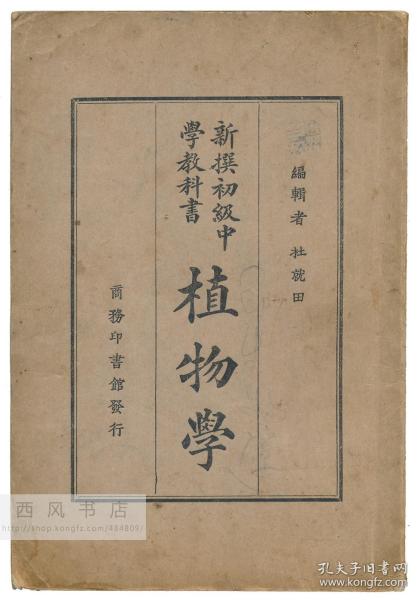 編輯者 杜就田
新撰初級中
學教科書
植物學
商務印書館發行
西风书店
http://shop.kongfz.com/484809/
孔夫子旧书网